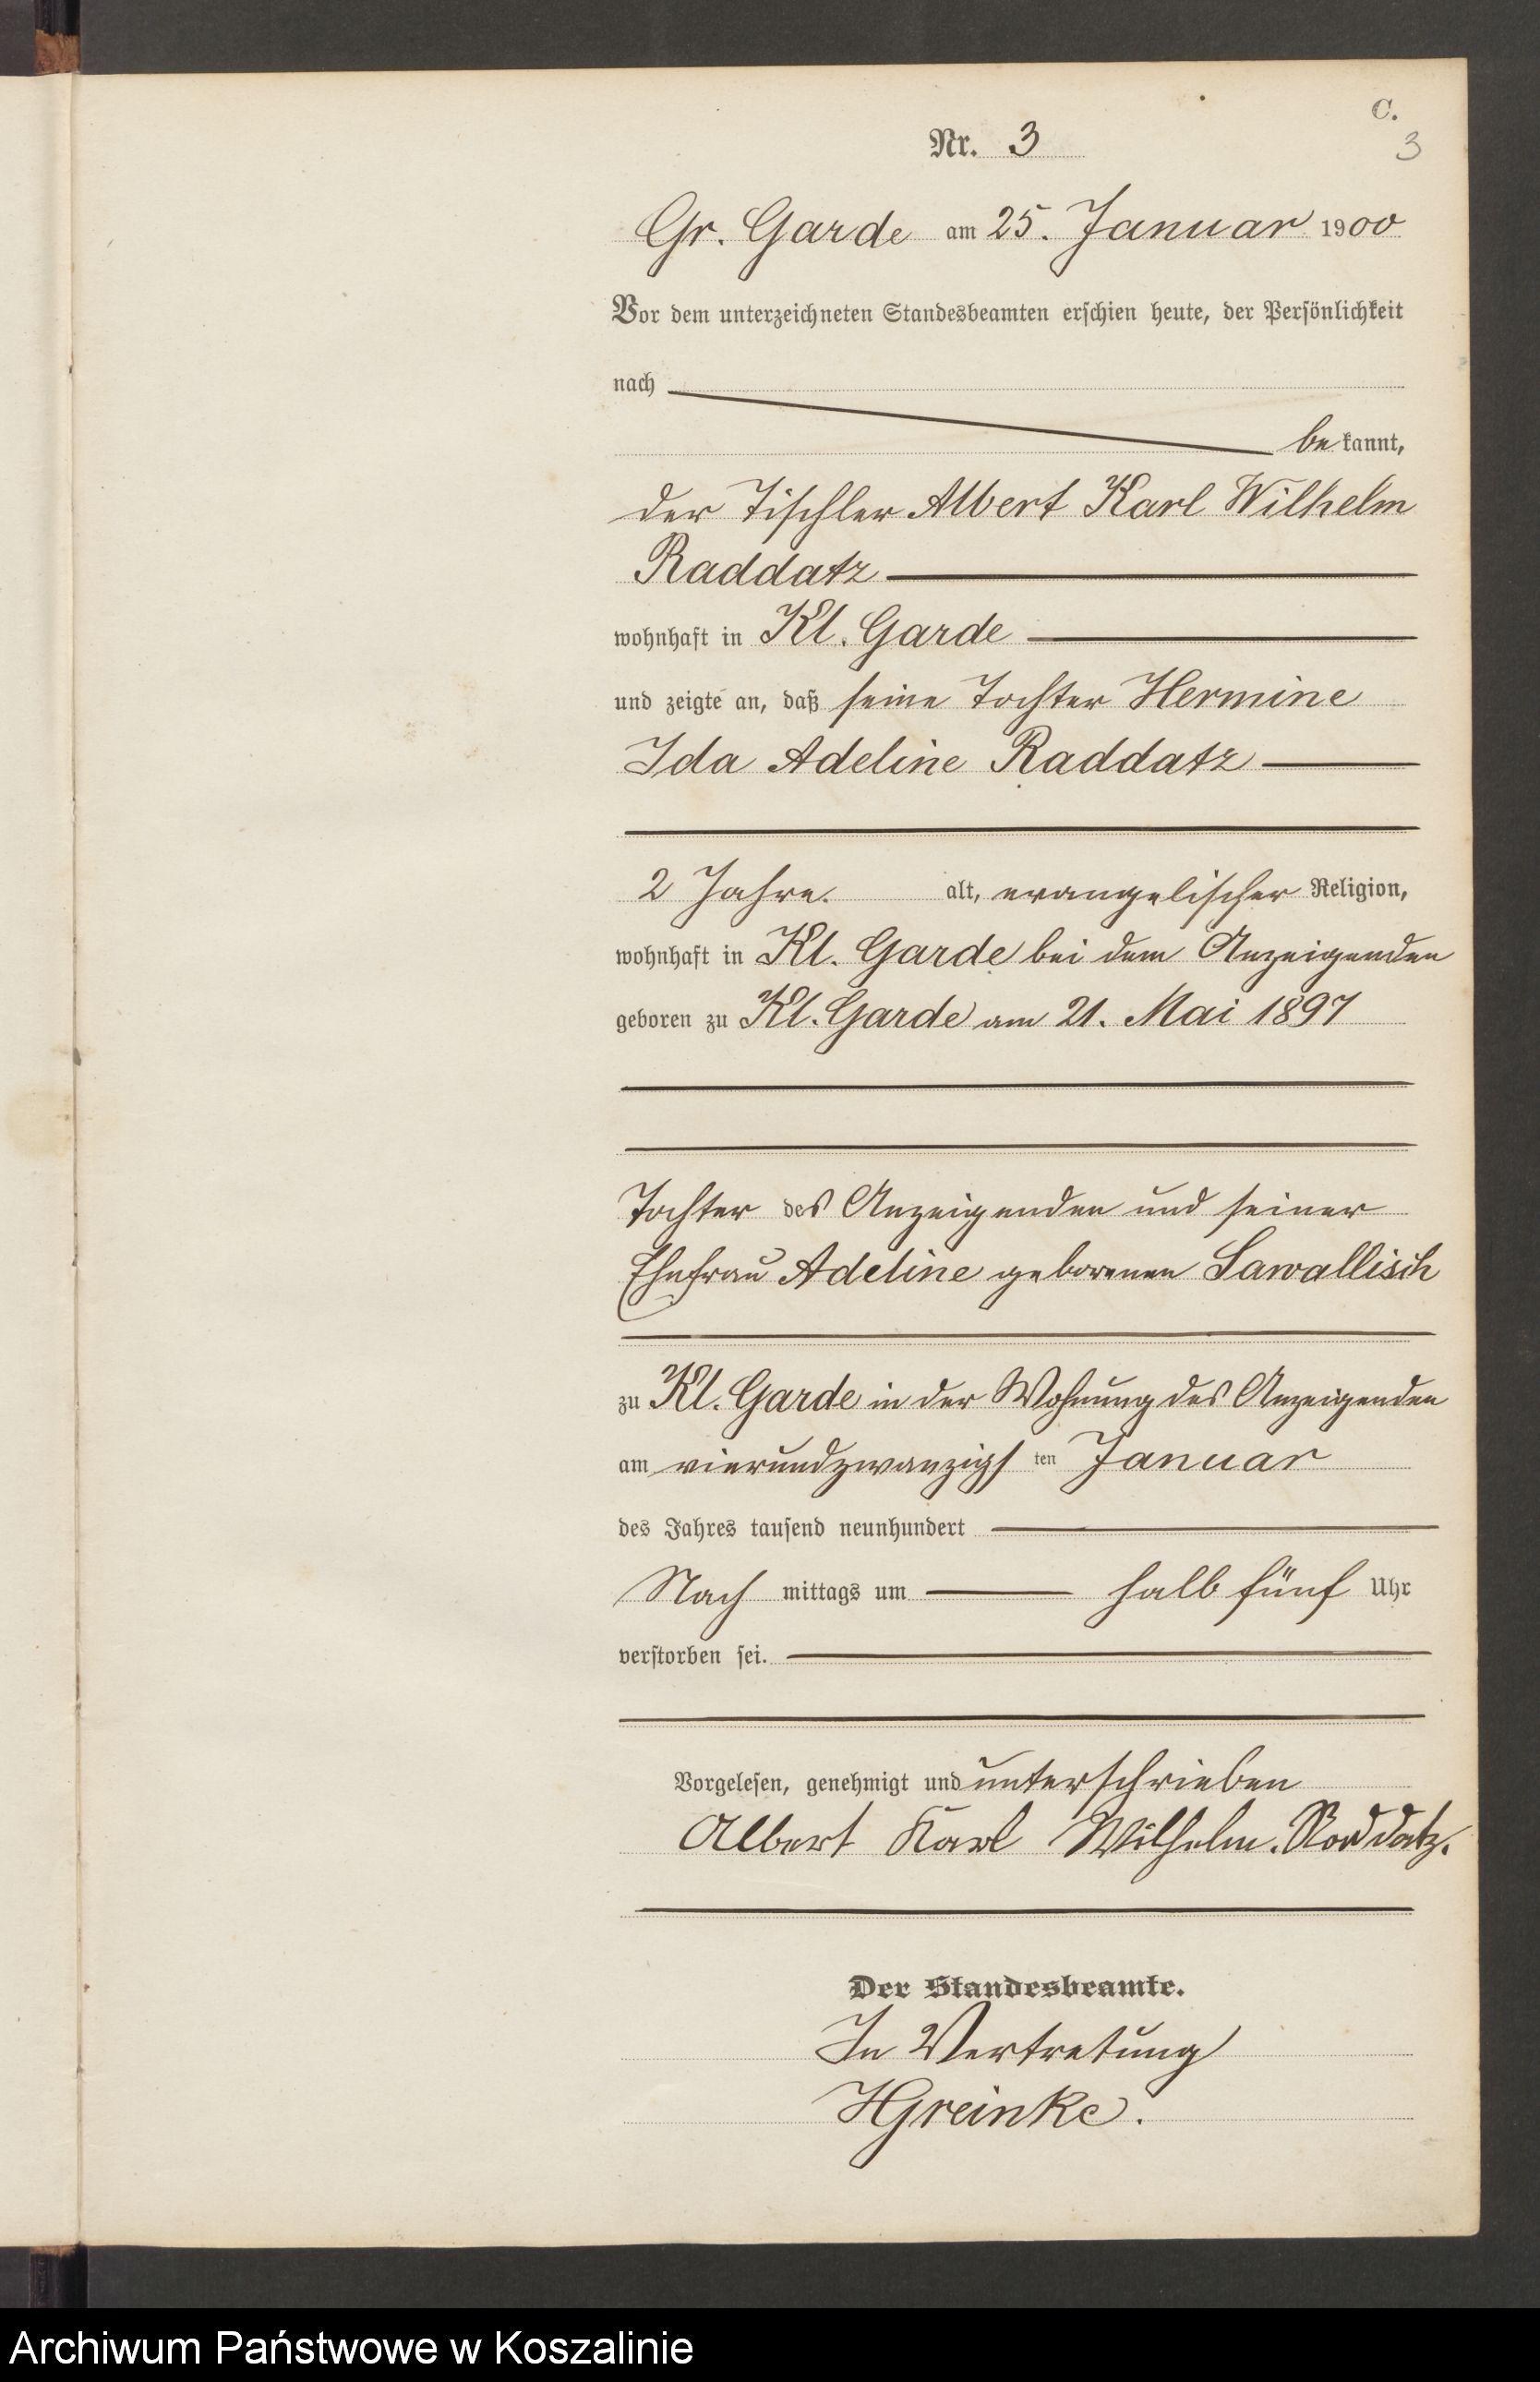 C.
Nr. 3
3
Gr. Garde am 25. Januar 1900
Vor dem unterzeichneten Standesbeamten erschien heute, der Persönlichkeit
nach
bekannt,
der Tischler Albert Karl Wilhelm
Raddatz
wohnhaft in Kl. Garde
und zeigte an, daß seine Tochter Hermine
Ida Adeline Raddatz
2 Jahre. alt, evangelischer Religion,
wohnhaft in Kl. Garde bei dem Anzeigenden
geboren zu Kl. Garde am 21. Mai 1897
Tochter des Anzeigenden und seiner
Ehefrau Adeline geborenen Sawallisch
zu Kl. Garde in der Wohnung des Anzeigenden
am vierundzwanzigsten Januar
des Jahres tausend neunhundert
Nachmittags um halb fünf Uhr
verstorben sei.
Vorgelesen, genehmigt und unterschrieben
Albert Karl Wilhelm. Raddatz.
Der Standesbeamte.
In Vertretung
HGreinke.
Archiwum Państwowe w Koszalinie